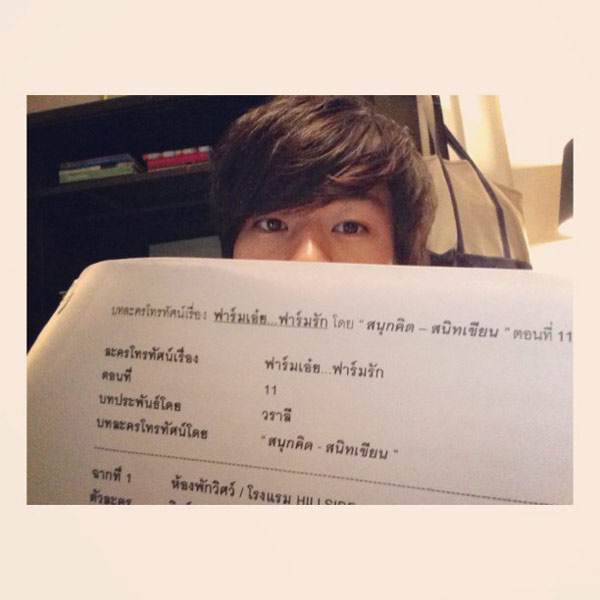 บทละครโทรทัศน์เรื่อง ฟาร์มเอ๋ย...ฟาร์มรัก โดย "สนุกคิด – สนิทเขียน" ตอนที่ 11
ละครโทรทัศน์เรื่อง ฟาร์มเอ๋ย...ฟาร์มรัก
ตอนที่ 11
บทประพันธ์โดย วราลี
บทละครโทรทัศน์โดย "สนุกคิด - สนิทเขียน "
ฉากที่ 1 ห้องพักวิศว์ / โรงแรม HILLSIDE
ตัวละคร